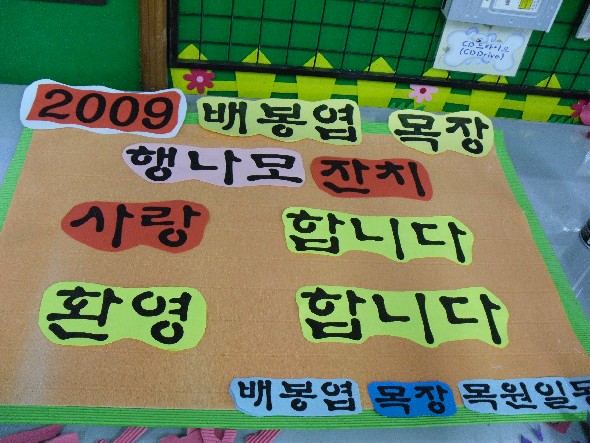 CD드라이브
(CD Drive)
2009 배봉엽 목장
행나모 잔치
사랑 합니다
환영 합니다
배봉엽 목장 목원일동